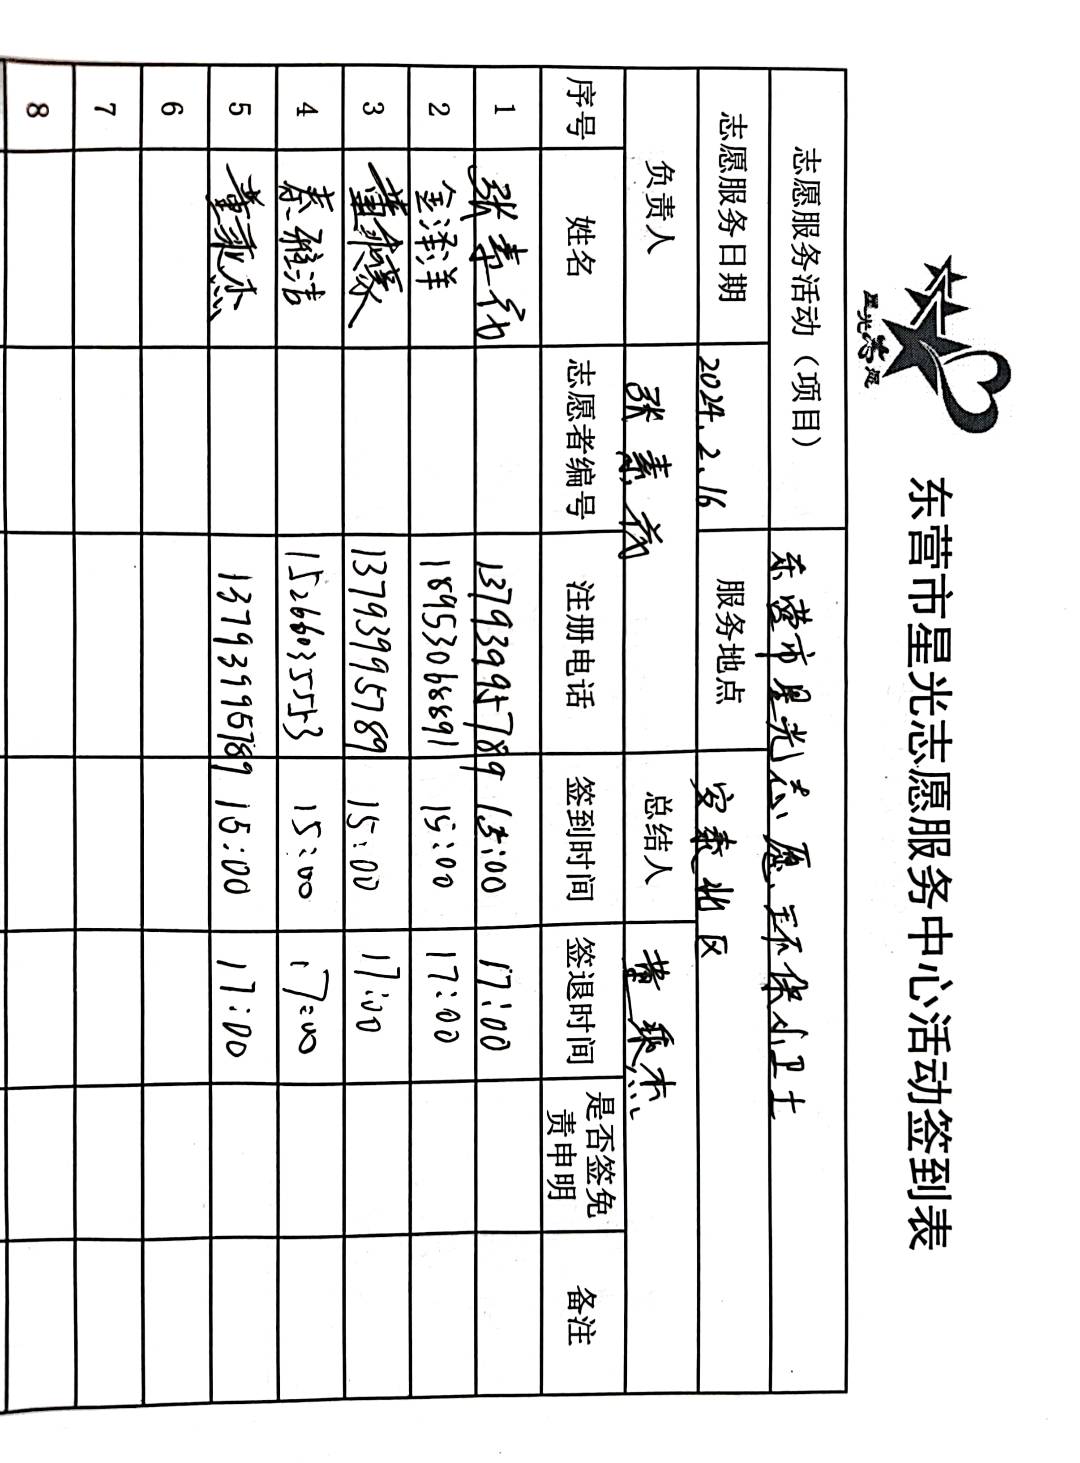 东营市星光志愿服务中心活动签到表
志愿服务活动（项目） 东营市星光志愿环保小卫士
志愿服务日期 2024.2.16 服务地点 安泰北区
负责人 张素 总结人 董乘杰
序号 姓名 志愿者编号 注册电话 签到时间 签退时间 是否签免责申明 备注
1 张素 13793995789 15:00 17:00
2 金泽洋 18953068891 15:00 17:00
3 董 13793995789 15:00 17:00
4 秦雅洁 15266035553 15:00 17:00
5 董乘杰 13793995789 15:00 17:00
6
7
8